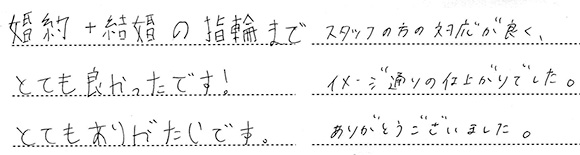 婚約+結婚の指輪まで
とても良かったです!
とてもありがたいです。
スタッフの方の対応が良く、
イメージ通りの仕上がりでした。
ありがとうございました。